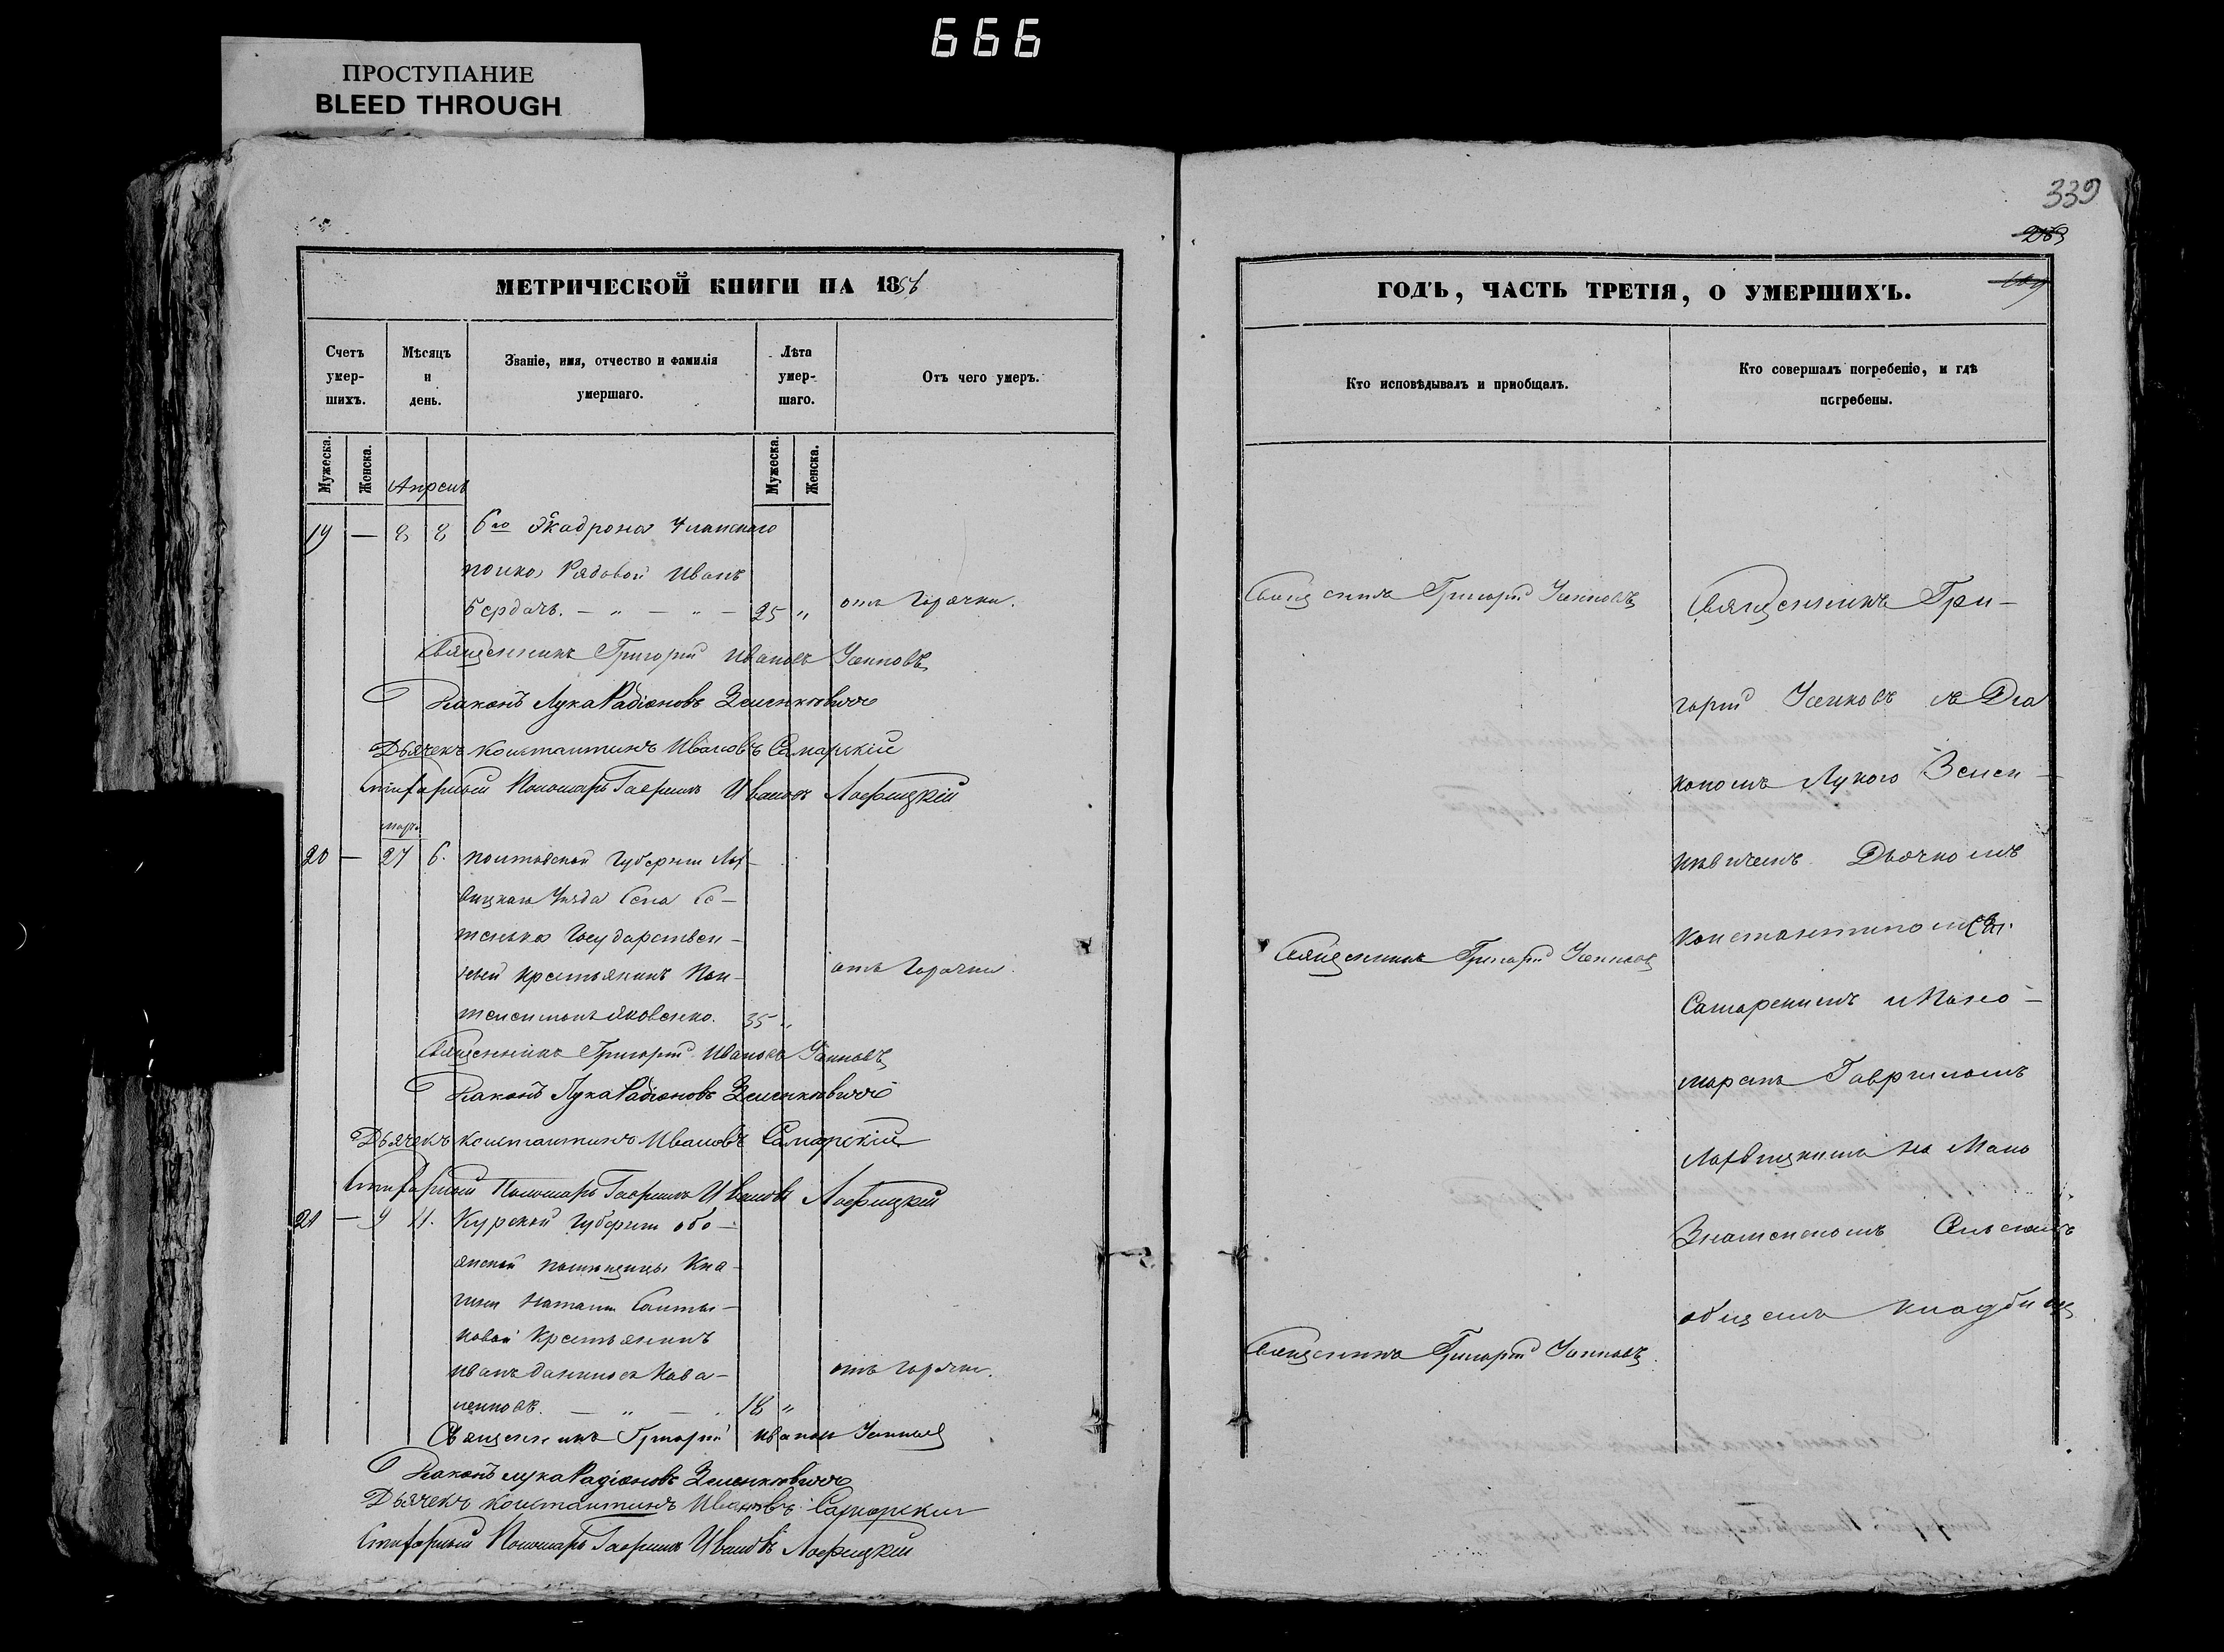 666
ПРОСТУПАНИЕ
BLEED THROUGH
339
МЕТРИЧЕСКОЙ КНИГИ НА 1856
Счетъ умер-шихъ.
Мѣсяцъ и день.
Званіе, имя, отчество и фамилія умершаго.
Лѣта умер-шаго.
Отъ чего умеръ.
Мужеска.
Женска.
Апрель
Мужеска.
Женска.
19 — 8 8 6го Эскадрона Уланскаго
полка Рядовой Иванъ
Бердачъ. — „ — „ — 25 „ отъ Горячки.
Священникъ Григорій Ивановъ
Діаконъ Лука Радіоновъ Зеленкѣвичъ
Дьячекъ Константинъ Ивановъ Самарскій
Пономарь Гавріилъ Ивановъ Лофицкій
мар.
20 — 27 6. Полтавской Губерніи Лох-
вицкаго Уѣзда Села Се-
Государствен-
ный Крестьянинъ Пан-
телеимонъ Яковенко. 35 „ отъ Горячки.
Священникъ Григорій Ивановъ
Діаконъ Лука Радіоновъ Зеленкѣвичъ
Дьячекъ Константинъ Ивановъ Самарскій
Пономарь Гавріилъ Ивановъ Лофицкій
21 — 9 11. Курской Губерніи Обо-
янской помѣщицы Кня-
гини Наталіи Салты-
ковой Крестьянинъ
Иванъ Даниловъ Кова-
ленковъ. — „ — 18 „ отъ Горячки.
Священникъ Григорій Ивановъ
Діаконъ Лука Радіоновъ Зеленкѣвичъ
Дьячекъ Константинъ Ивановъ Самарскій
Пономарь Гавріилъ Ивановъ Лофицкій
ГОДЪ, ЧАСТЬ ТРЕТІЯ, О УМЕРШИХЪ.
Кто исповѣдывалъ и пріобщалъ.
Кто совершалъ погребеніе, и гдѣ погребены.
Священникъ Григорій
Священникъ Григорій
Священникъ Григорій
Священникъ Гри-
горій съ Діа
кономъ Лукою Зелен-
кѣвичемъ Дьячкомъ
Константиномъ
Самарскимъ и Поно-
маремъ Гавриломъ
Лохвицкимъ на Мало
Знаменскомъ Сельскомъ
общемъ кладбищ